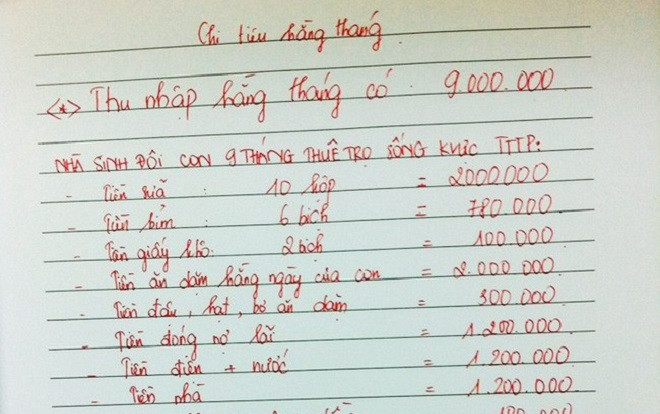 Chi tiêu hằng tháng
<*> Thu nhập hằng tháng có : 9.000.000
NHÀ SINH ĐÔI CON 9 THÁNG THUÊ TRỌ SỐNG KHU TTTP:
- Tiền sữa : 10 hộp = 2000000
- Tiền bỉm : 6 bịch = 780.000
- Tiền giấy khô : 2 bịch = 100.000
- Tiền ăn dặm hằng ngày của con = 2.000.000
- Tiền dầu, hạt, bơ ăn dặm = 300.000
- Tiền đóng nợ lãi = 1.200.000
- Tiền điện + nước = 1.200.000
- Tiền nhà = 1.200.000